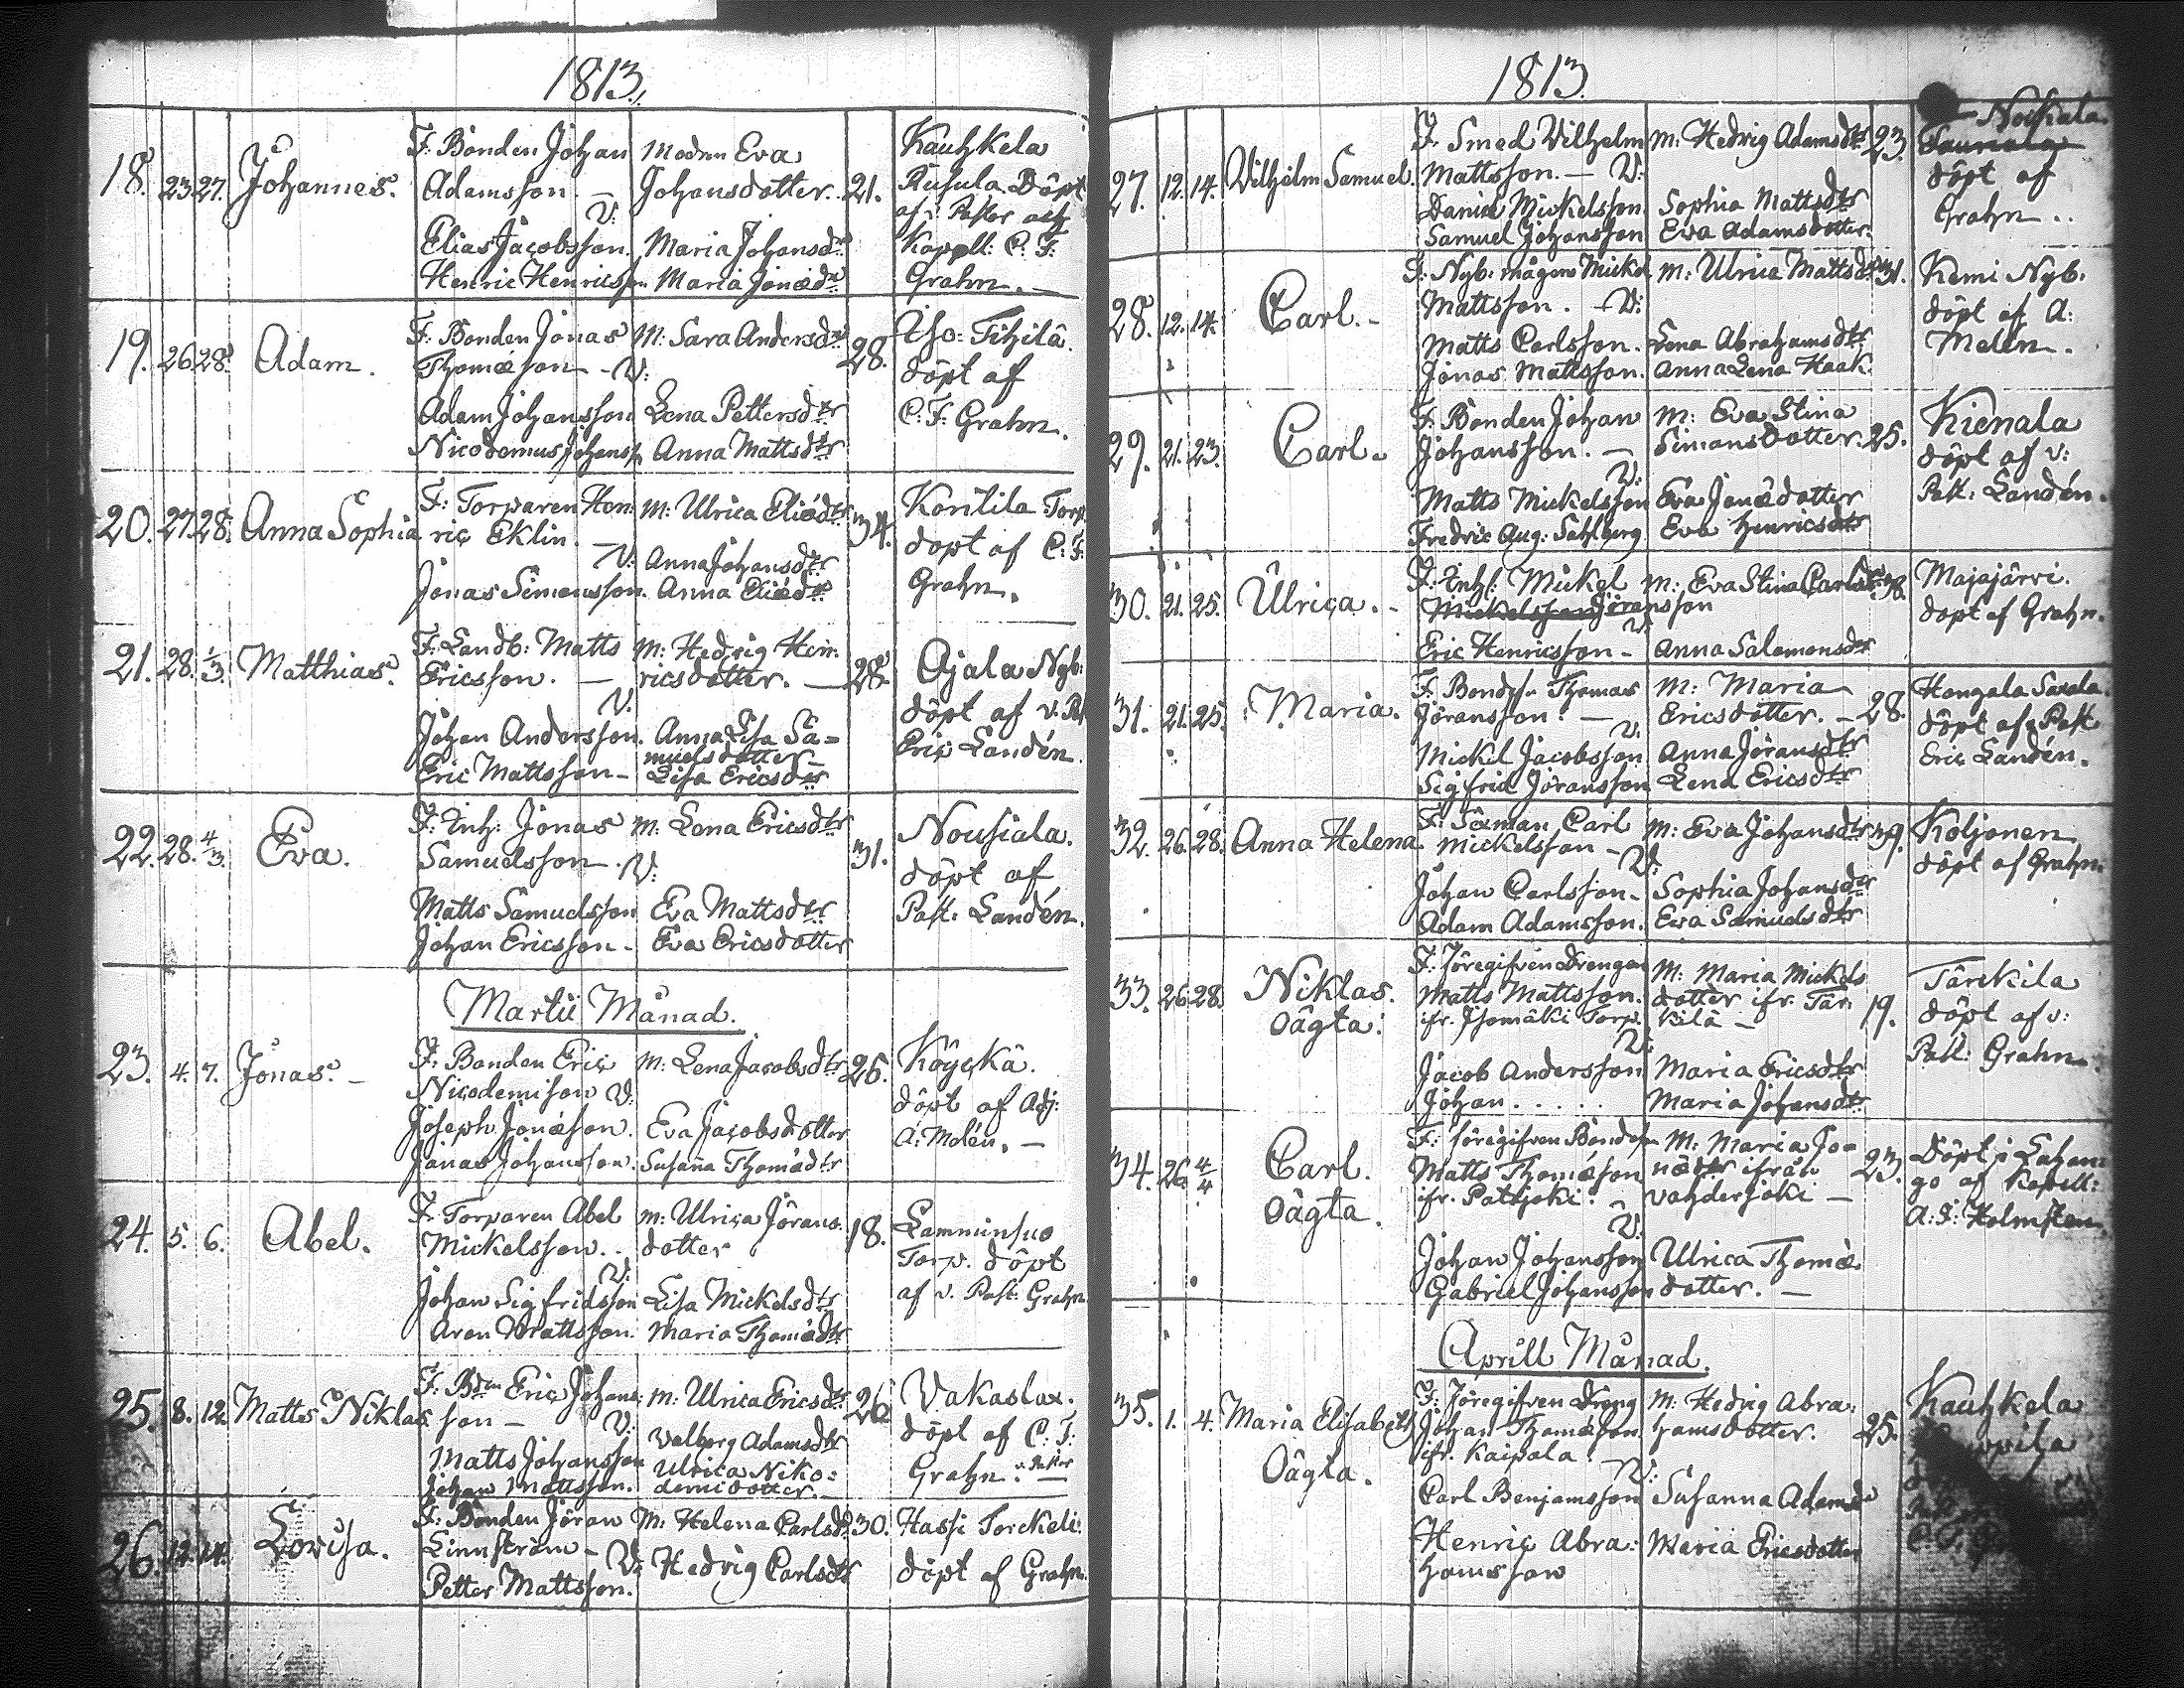 1813.
18. 23. 27. Johannes. F: Bonden Johan Modren Eva Kauhkela
Adamsson. — Johansdotter. 21. Rusula. Döpt
V: af v: Pastor och
Elias Jacobsson. Maria Johansdr Kapell: C: F:
Henric Henricsson Maria Jonædr Grahn. —
19. 26. 28. Adam. F: Bonden Jonas M: Sara Andersdr 28. Iso: Tihilä.
Thomæson — V: döpt af
Adam Johansson Lena Pettersdtr C: F: Grahn.
Nicodemus Johanss. Anna Mattsdtr
20. 27. 28. Anna Sophia F: Torparen Hen: M: Ulrica Eliædtr 34. Konlila Torp
ric Eklin. — döpt af C: F:
V: Anna Johansdtr Grahn.
Jonas Simonsson. Anna Eliædr
21. 28. 1/3. Matthias. F: Landb: Matts M: Hedvig Hen: 28. Ajala Nyb:
Ericsson. — ricsdotter. — döpt af v: Past
V: Eric Landén.
Johan Andersson. Anna Lisa Sa=
muelsdotter —
Eric Mattsson — Lisa Ericsdtr
22. 28. 4/3 Eva. F: Inh: Jonas M: Lena Ericsdtr 31. Nousiala.
Samuelsson. V: döpt af
Matts Samuelsson Eva Mattsdtr Past: Landén.
Johan Ericsson — Eva Ericsdotter
Martii Månad.
23. 4. 7. Jonas. — F: Bonden Eric M: Lena Jacobsdtr 26. Köyckä.
Nicodemison V: döpt af Adj:
Joseph Jonæson. Eva Jacobsdotter A: Melén. —
Jonas Johansson. Susanna Thomædtr
24. 5. 6. Abel. F: Torparen Abel M: Ulrica Jörans: 18. Lamminsuo
Mickelsson. . dotter Torp. döpt
V: af v. Past: Grahn
Johan Sigfridsson Lisa Mickelsdtr
Aron Mattsson. Maria Thomædtr
25. 8. 12. Matts Niklas F: Bdn Eric Johans: M: Ulrica Ericsdr 26 Vakaslax.
son — V: Valborg Adamsdtr döpt af C: F:
Matts Johansson Ulrica Niko: Grahn. v. Pastor
Johan Mattsson. demidotter. —
26. 12. 14. Lovisa. F: Bonden Jöran M: Helena Carlsd. 30. Hassi Torckeli:
Linnström — V: Hedvig Carlsdtr döpt af Grahn.
Petter Mattsson.
1813.
27. 12. 14. Vilhelm Samuel. F: Smed Vilhelm M: Hedvig Adamsdtr 23. Noikala.
Mattsson. — V: döpt af
Daniel Mickelsson Sophia Mattsdtr Grahn . .
Samuel Johansson Eva Adamsdotter.
28. 12. 14. Carl. — F: Nyb: mågen Mickel M: Ulrica Mattsdtr 31. Kemi Nyb:
Mattsson. — V: döpt af A:
Matts Carlsson. Lena Abrahamsdtr Melén.
Jonas Mattsson. Anna Lena Haak.
29. 21. 23. Carl. F: Bonden Johan M: Eva Stina Kienala
Johansson. — Simonsdotter. 25. döpt af v:
V: Past: Landén.
Matts Mickelsson Eva Jonædotter
Fredric Aug: Sahlberg Eva Henricsdtr
30. 21. 25. Ulrica. — F: Inh: Mickel M: Eva Stina Carlsdtr 38. Majajärvi.
Mickelsson Jöransson döpt af Grahn.
V:
Eric Henricsson — Anna Salomonsdtr
31. 21. 25. Maria. F: Bondes: Thomas M: Maria Hongala Saxala.
Jöransson. — Ericsdotter. — 28. döpt af v Past
V: Eric Landén.
Mickel Jacobsson Anna Jöransdtr
Sigfrid Jöransson Lena Ericsdtr
32. 26. 28. Anna Helena. F: Sexman Carl M: Eva Johansdtr 39. Koljonen
Mickelsson — V: döpt af Grahn.
Johan Carlsson. Sophia Johansdtr
Adam Adamsson. Eva Samuelsdtr
33. 26. 28. Niklas. F: föregifven Drengen M: Maria Mickels Tärckilä
Oägta. Matts Mattsson. dotter ifr. Tär: 19. döpt af v:
ifr. Isomäki Torp. kilä — Past: Grahn.
V:
Jacob Andersson Maria Ericsdtr
Johan . . . . . Maria Johansdtr
34. 26. 4/4 Carl. F: föregifven Bondes: M: Maria Jo= 23. Döpt i Lahan
Oägta. Matts Thomæson nædtr ifrån go af Kapell:
ifr. Patajoki. — Vahderjoki — A: J: Holmsten.
V:
Johan Johansson Ulrica Thomæ
Gabriel Johansson dotter. —
Aprill Månad.
35. 1. 4. Maria Elisabeth F: föregifven Dreng M: Hedvig Abra: 25. Kauhkela
Oägta. Johan Thomæson hamsdotter.
ifr. Kaipala. —
V:
Carl Benjamsson Susanna Adamsd
Henric Abra: Maria Ericsdotter
hamsson